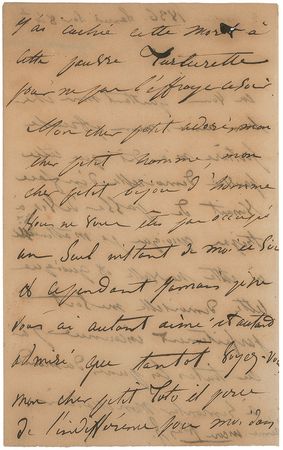 j'ai cachée cette mort à
cette pauvre Turlurette
pour ne pas l'effrayer ce soir.
Mon cher petit adoré, mon
cher petit homme, mon
cher petit bijou d'homme
vous ne vous êtes pas occupé
un seul instant de moi ce soir
et cependant jamais je ne
vous ai autant aimé et autant
admiré que tantôt. Voyez-vous
mon cher petit Toto il
de l'indifférence pour moi dans